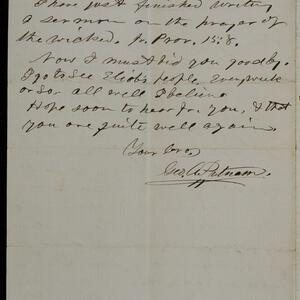 I have just finished writing
a sermon on the prayer of
the wicked. fr. Prov. 15:8.
Now I must bid you goodby.
I go to see people every week
or so. all well I believe
Hope soon to hear fr. you, & that
you are quite well again.
Your bro.
Geo. A. Putnam.